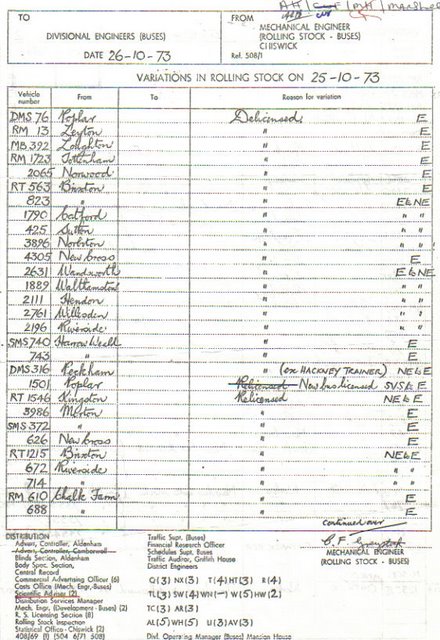 TO
DIVISIONAL ENGINEERS (BUSES)
DATE 26-10-73
FROM
MECHANICAL ENGINEER
(ROLLING STOCK - BUSES)
CHISWICK
Ref. 508/1
VARIATIONS IN ROLLING STOCK ON 25-10-73
Vehicle number From To Reason for variation
DMS 76 Poplar Delicensed E
RM 13 Leyton " E
MB 392 Loughton " E
RM 1723 Tottenham " E
2065 Norwood " E
RT 563 Brixton " E
823 " " E&NE
1790 Catford " " "
425 Sutton " " "
3896 Norbiton " " "
4305 New Cross " E
2631 Wandsworth " E&NE
1889 Walthamstow " " "
2111 Hendon " " "
2761 Willesden " " "
2196 Riverside " " "
SMS 740 Harrow Weald " E
743 " " E
DMS 316 Peckham " (ex HACKNEY TRAINER) NE&E
1501 Poplar Relicensed New bus licensed SVS & E
RT 1546 Kingston Relicensed NE&E
3986 Merton " E
SMS 372 " " E
626 New Cross " E
RT 1215 Brixton " NE&E
672 Riverside " " "
714 " " " "
RM 610 Chalk Farm " E
688 " " E
continued over
MECHANICAL ENGINEER
(ROLLING STOCK - BUSES)
DISTRIBUTION
Advert. Controller, Aldenham
Advert. Controller, Camberwell
Blinds Section, Aldenham
Body Spec. Section,
Central Record
Commercial Advertising Officer (6)
Costs Office (Mech. Engr-Buses)
Scientific Adviser (2)
Distribution Services Manager
Mech. Engr. (Development - Buses) (2)
R. S. Licensing Section (8)
Rolling Stock Inspection
Statistical Office - Chiswick (2)
68/69 (1) (504 6/71 508)
Traffic Supt. (Buses)
Financial Research Officer
Schedules Supt. Buses
Traffic Audior, Griffith House
District Engineers
Q(3) NX(3) T(4) HT(3) R(4)
TL(3) SW(4) WN(-) W(5) HW(2)
TC(3) AR(3)
AL(5) WH(5) U(3) AV(3)
Div. Operating Manager (Buses) Mansion House